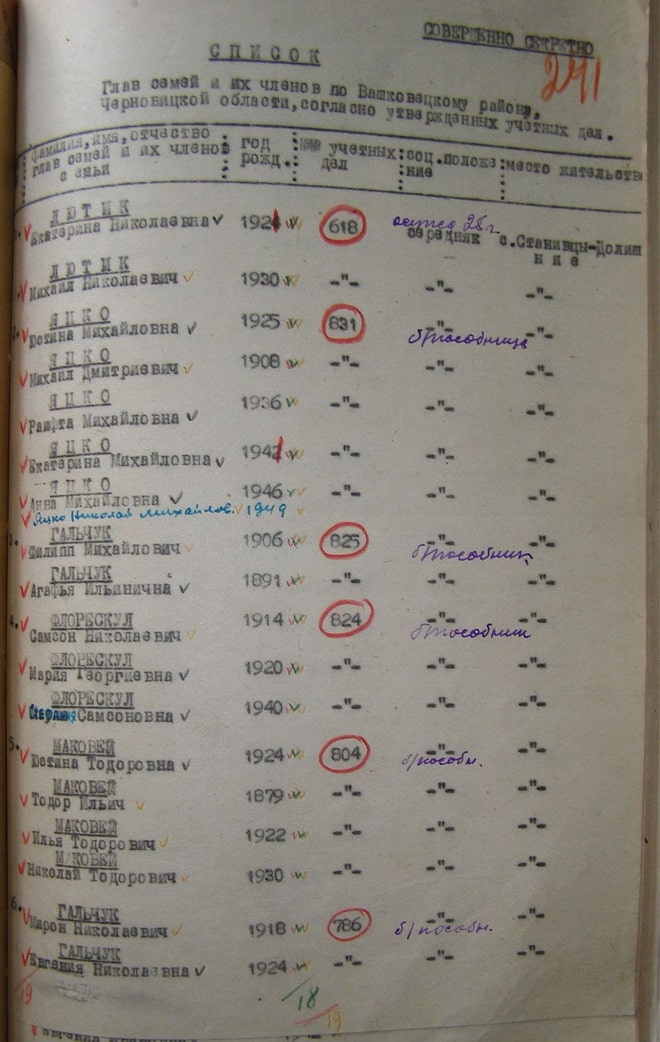 СОВЕРШЕННО СЕКРЕТНО
241
СПИСОК
Глав семей и их членов по Вашковецкому району,
Черновицкой области, согласно утвержденных учетных дел.
фамилия, имя, отчество глав семей и их членов семьи : год рожд. : учетных дел : соц. положение : место жительств
ЛЮТИК
Екатерина Николаевна 1924 618 середняк с. Станивцы-Долишние
ЛЮТИК
Михаил Николаевич 1930 -"- -"- -"-
ЯЦКО
Михайловна 1925 831 -"- б/пособница -"-
ЯЦКО
Михаил Дмитриевич 1908 -"- -"- -"-
ЯЦКО
Михайловна 1936 -"- -"- -"-
ЯЦКО
Екатерина Михайловна 1941 -"- -"- -"-
ЯЦКО
Анна Михайловна 1946 -"- -"- -"-
Яцко Николай Михайлов. 1949
3. ГАЛЬЧУК
Филипп Михайлович 1906 825 -"- б/пособник -"-
ГАЛЬЧУК
Агафья Ильинична 1891 -"- -"- -"-
4. ФЛОРЕСКУЛ
Самсон Николаевич 1914 824 -"- б/пособник -"-
ФЛОРЕСКУЛ
Мария Георгиевна 1920 -"- -"- -"-
ФЛОРЕСКУЛ
Самсоновна 1940 -"- -"- -"-
5. МАКОВЕЙ
Тодоровна 1924 804 -"- б/пособн. -"-
МАКОВЕЙ
Тодор Ильич 1879 -"- -"- -"-
МАКОВЕЙ
Илья Тодорович 1922 -"- -"- -"-
МАКОВЕЙ
Николай Тодорович 1930 -"- -"- -"-
6. ГАЛЬЧУК
Мирон Николаевич 1918 786 -"- б/пособн. -"-
ГАЛЬЧУК
Евгения Николаевна 1924 -"- -"- -"-
19 18 19